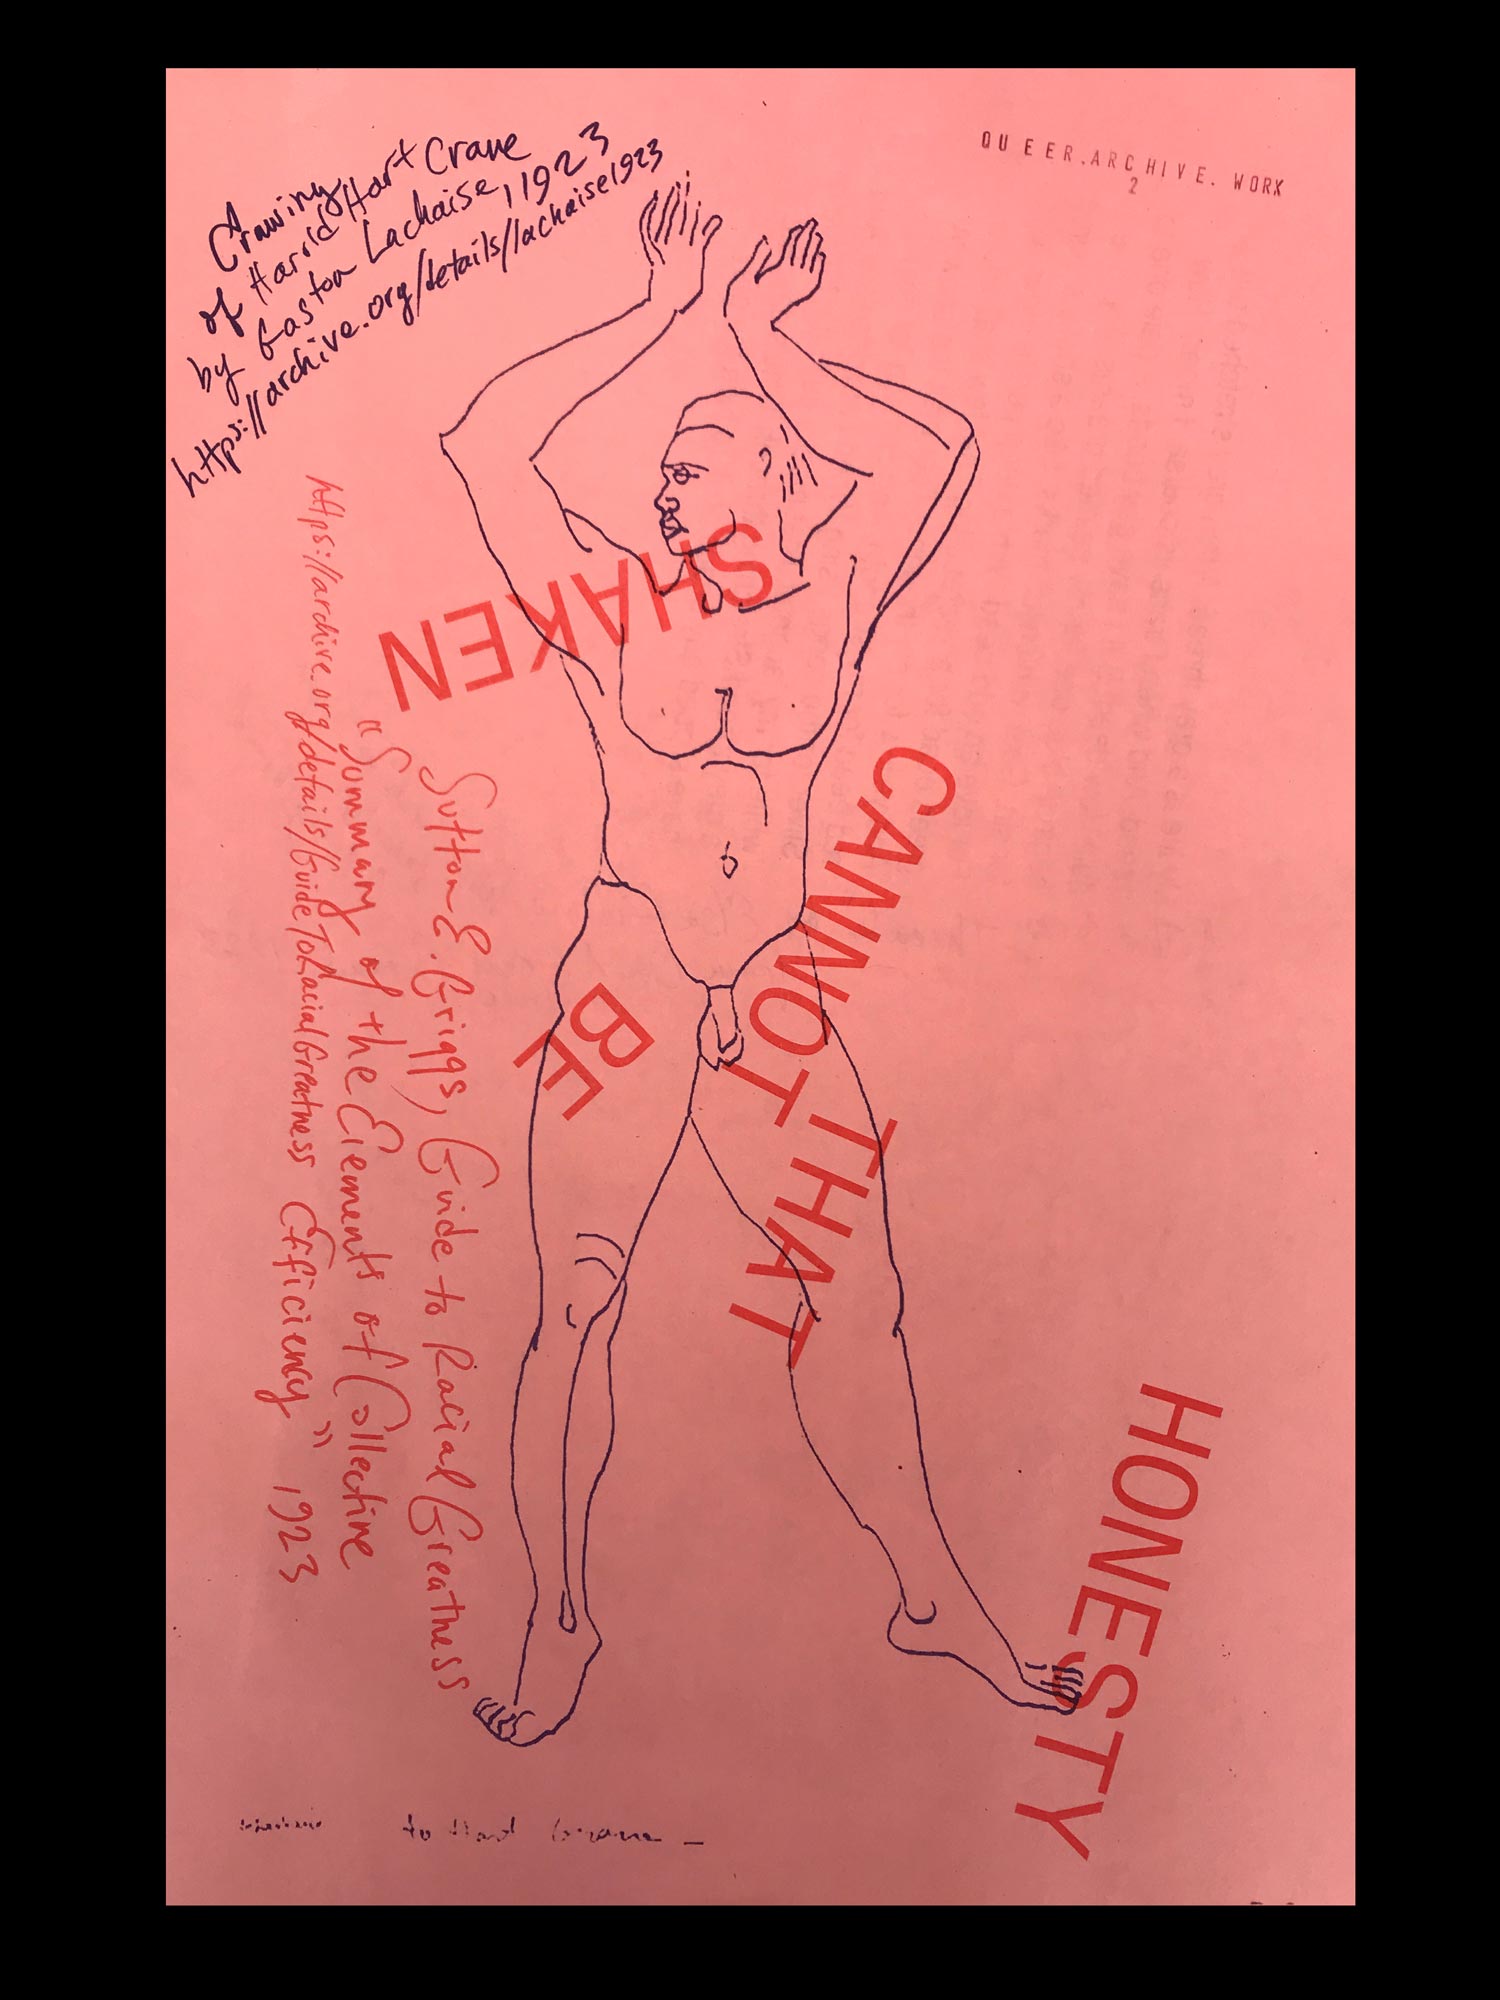 QUEER.ARCHIVE.WORK
2
Drawing
of Harold Hart Crane
by Gaston Lachaise, 1923
https://archive.org/details/lachaise1923
HONESTY
THAT
CANNOT
BE
SHAKEN
Sutton E. Griggs, Guide to Racial Greatness
"Summary of the Elements of Collective
https://archive.org/details/GuideToRacialGreatness Efficiency" 1923
to Hart Crane –